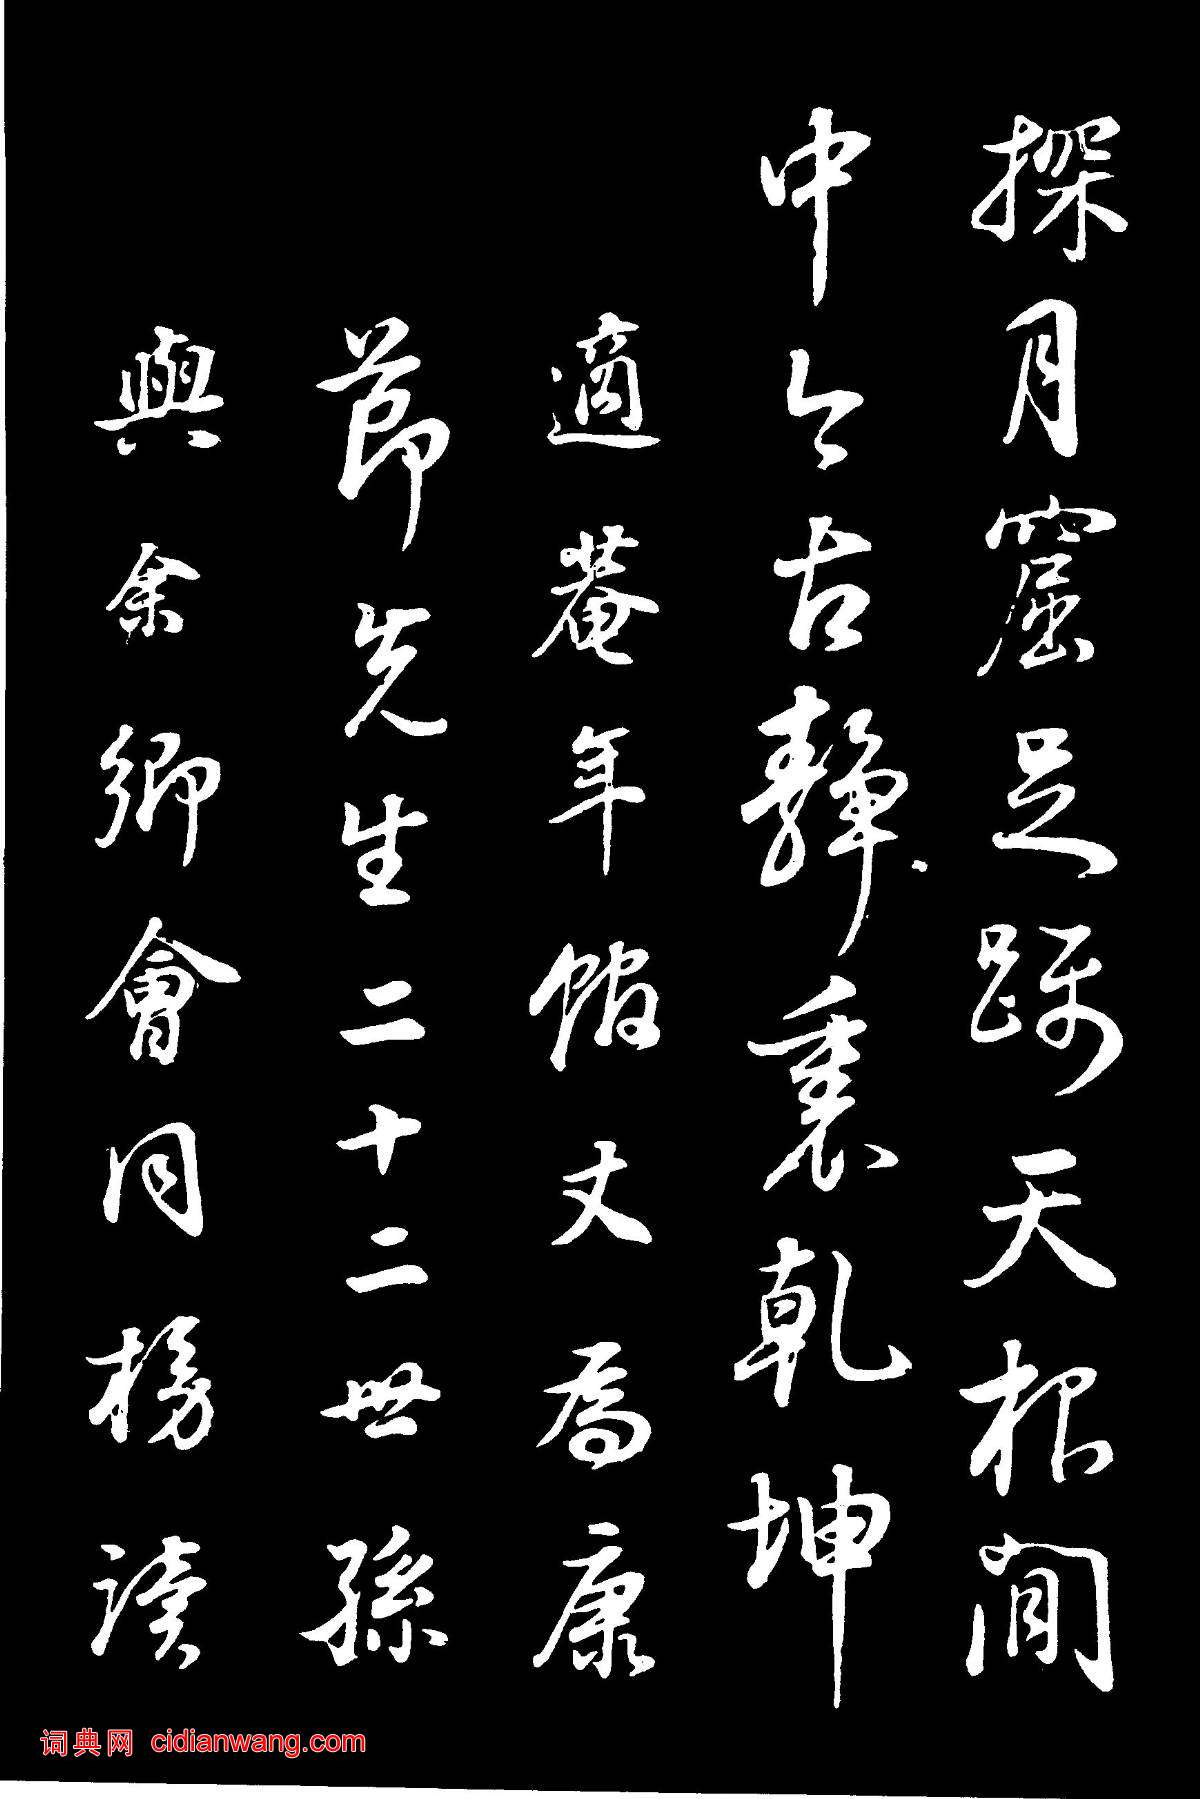 探月窟足躡天根閒
中今古靜裏乾坤
適菴年館丈為康
節先生二十二世孫
與余鄉會同榜讀
词典网 cidianwang.com